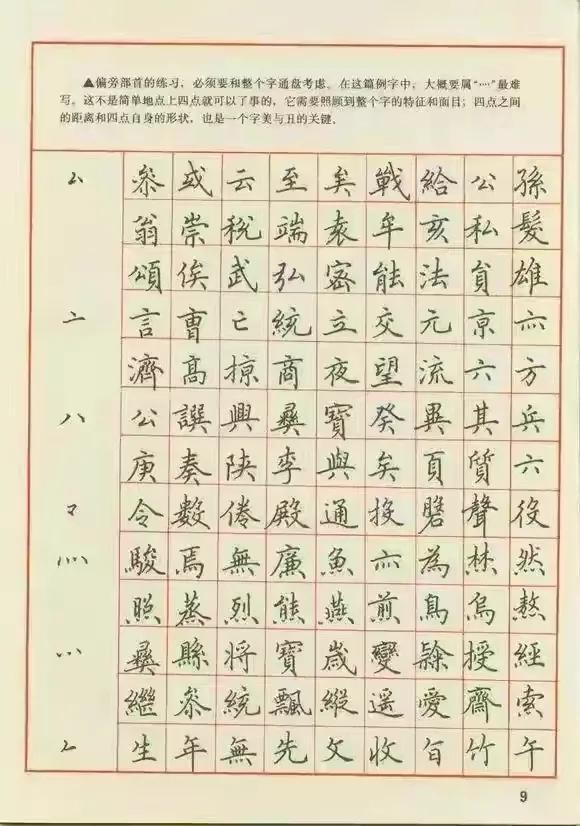 ▲偏旁部首的练习，必须要和整个字通盘考虑。在这篇例字中，大概要属“灬”最难
写。这不是简单地点上四点就可以了事的，它需要照顾到整个字的特征和面目；四点之间
的距离和四点自身的形状，也是一个字美与丑的关键。
厶 叅 或 云 至 矣 戰 給 公 孫
翁 崇 稅 端 袁 牟 亥 私 髮
頌 俟 武 弘 密 能 法 貟 雄
亠 言 曹 亡 統 立 交 元 京 亦
濟 高 掠 商 夜 望 流 六 方
八 公 譔 興 彝 寶 癸 異 其 兵
庚 奏 陝 李 與 矣 頁 質 六
令 數 倦 殿 通 投 聲 役
灬 駿 焉 無 廉 魚 亦 為 然
照 蒸 烈 熊 燕 煎 鳥 烏 熬
彝 縣 将 寶 歲 變 授 經
繼 叅 統 飄 縱 遥 愛 齋 索
生 年 無 先 攵 收 竹 午
9